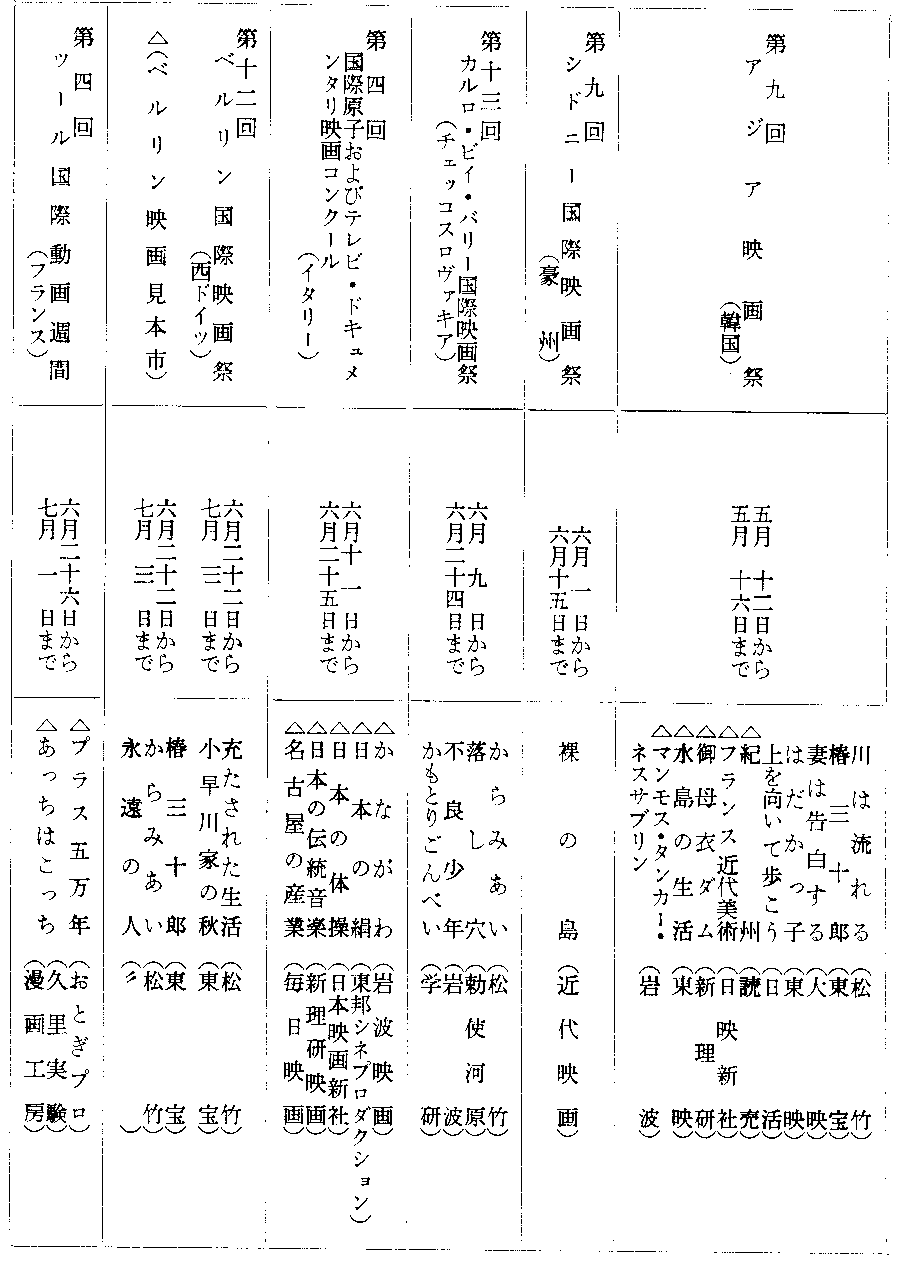 第九回
アジア映画祭
（韓国）
五月　十二日から
五月　十六日まで
川は流れる（松竹）
椿三十郎（東宝）
妻は告白する（大映）
はだかっ子（東映）
上を向いて歩こう（日活）
△紀州（読売）
△フランス近代美術（日映新社）
△御母衣ダム（新理研）
△水島の生活（東映）
△マンモス・タンカー・
ネスサブリン（岩波）
第九回
シドニー国際映画祭
（豪州）
六月　一日から
六月十五日まで
裸の島（近代映画）
第十三回
カルロ・ビイ・バリー国際映画祭
（チェッコスロヴァキア）
六月　九　日から
六月二十四日まで
からみあい（松竹）
落し穴（勅使河原）
不良少年（岩波）
かもとりごんべい（学研）
第四回
国際原子およびテレビ・ドキュメ
ンタリ映画コンクール
（イタリー）
六月十一日から
六月二十五日まで
△かながわ（岩波映画）
△日本の絹（東邦シネプロダクション）
△日本の体操（日本映画新社）
△日本の伝統音楽（新理研映画）
△名古屋の産業（毎日映画）
第十二回
ベルリン国際映画祭
（西ドイツ）
六月二十二日から
七月　三　日まで
充たされた生活（松竹）
小早川家の秋（東宝）
△（ベルリン映画見本市）
六月二十二日から
七月　三　日まで
椿三十郎（東宝）
からみあい（松竹）
永遠の人（〃）
第四回
ツール国際動画週間
（フランス）
六月二十六日から
七月　一　日まで
△プラス五万年（おとぎプロ）
△あっちはこっち（久里実験
漫画工房）